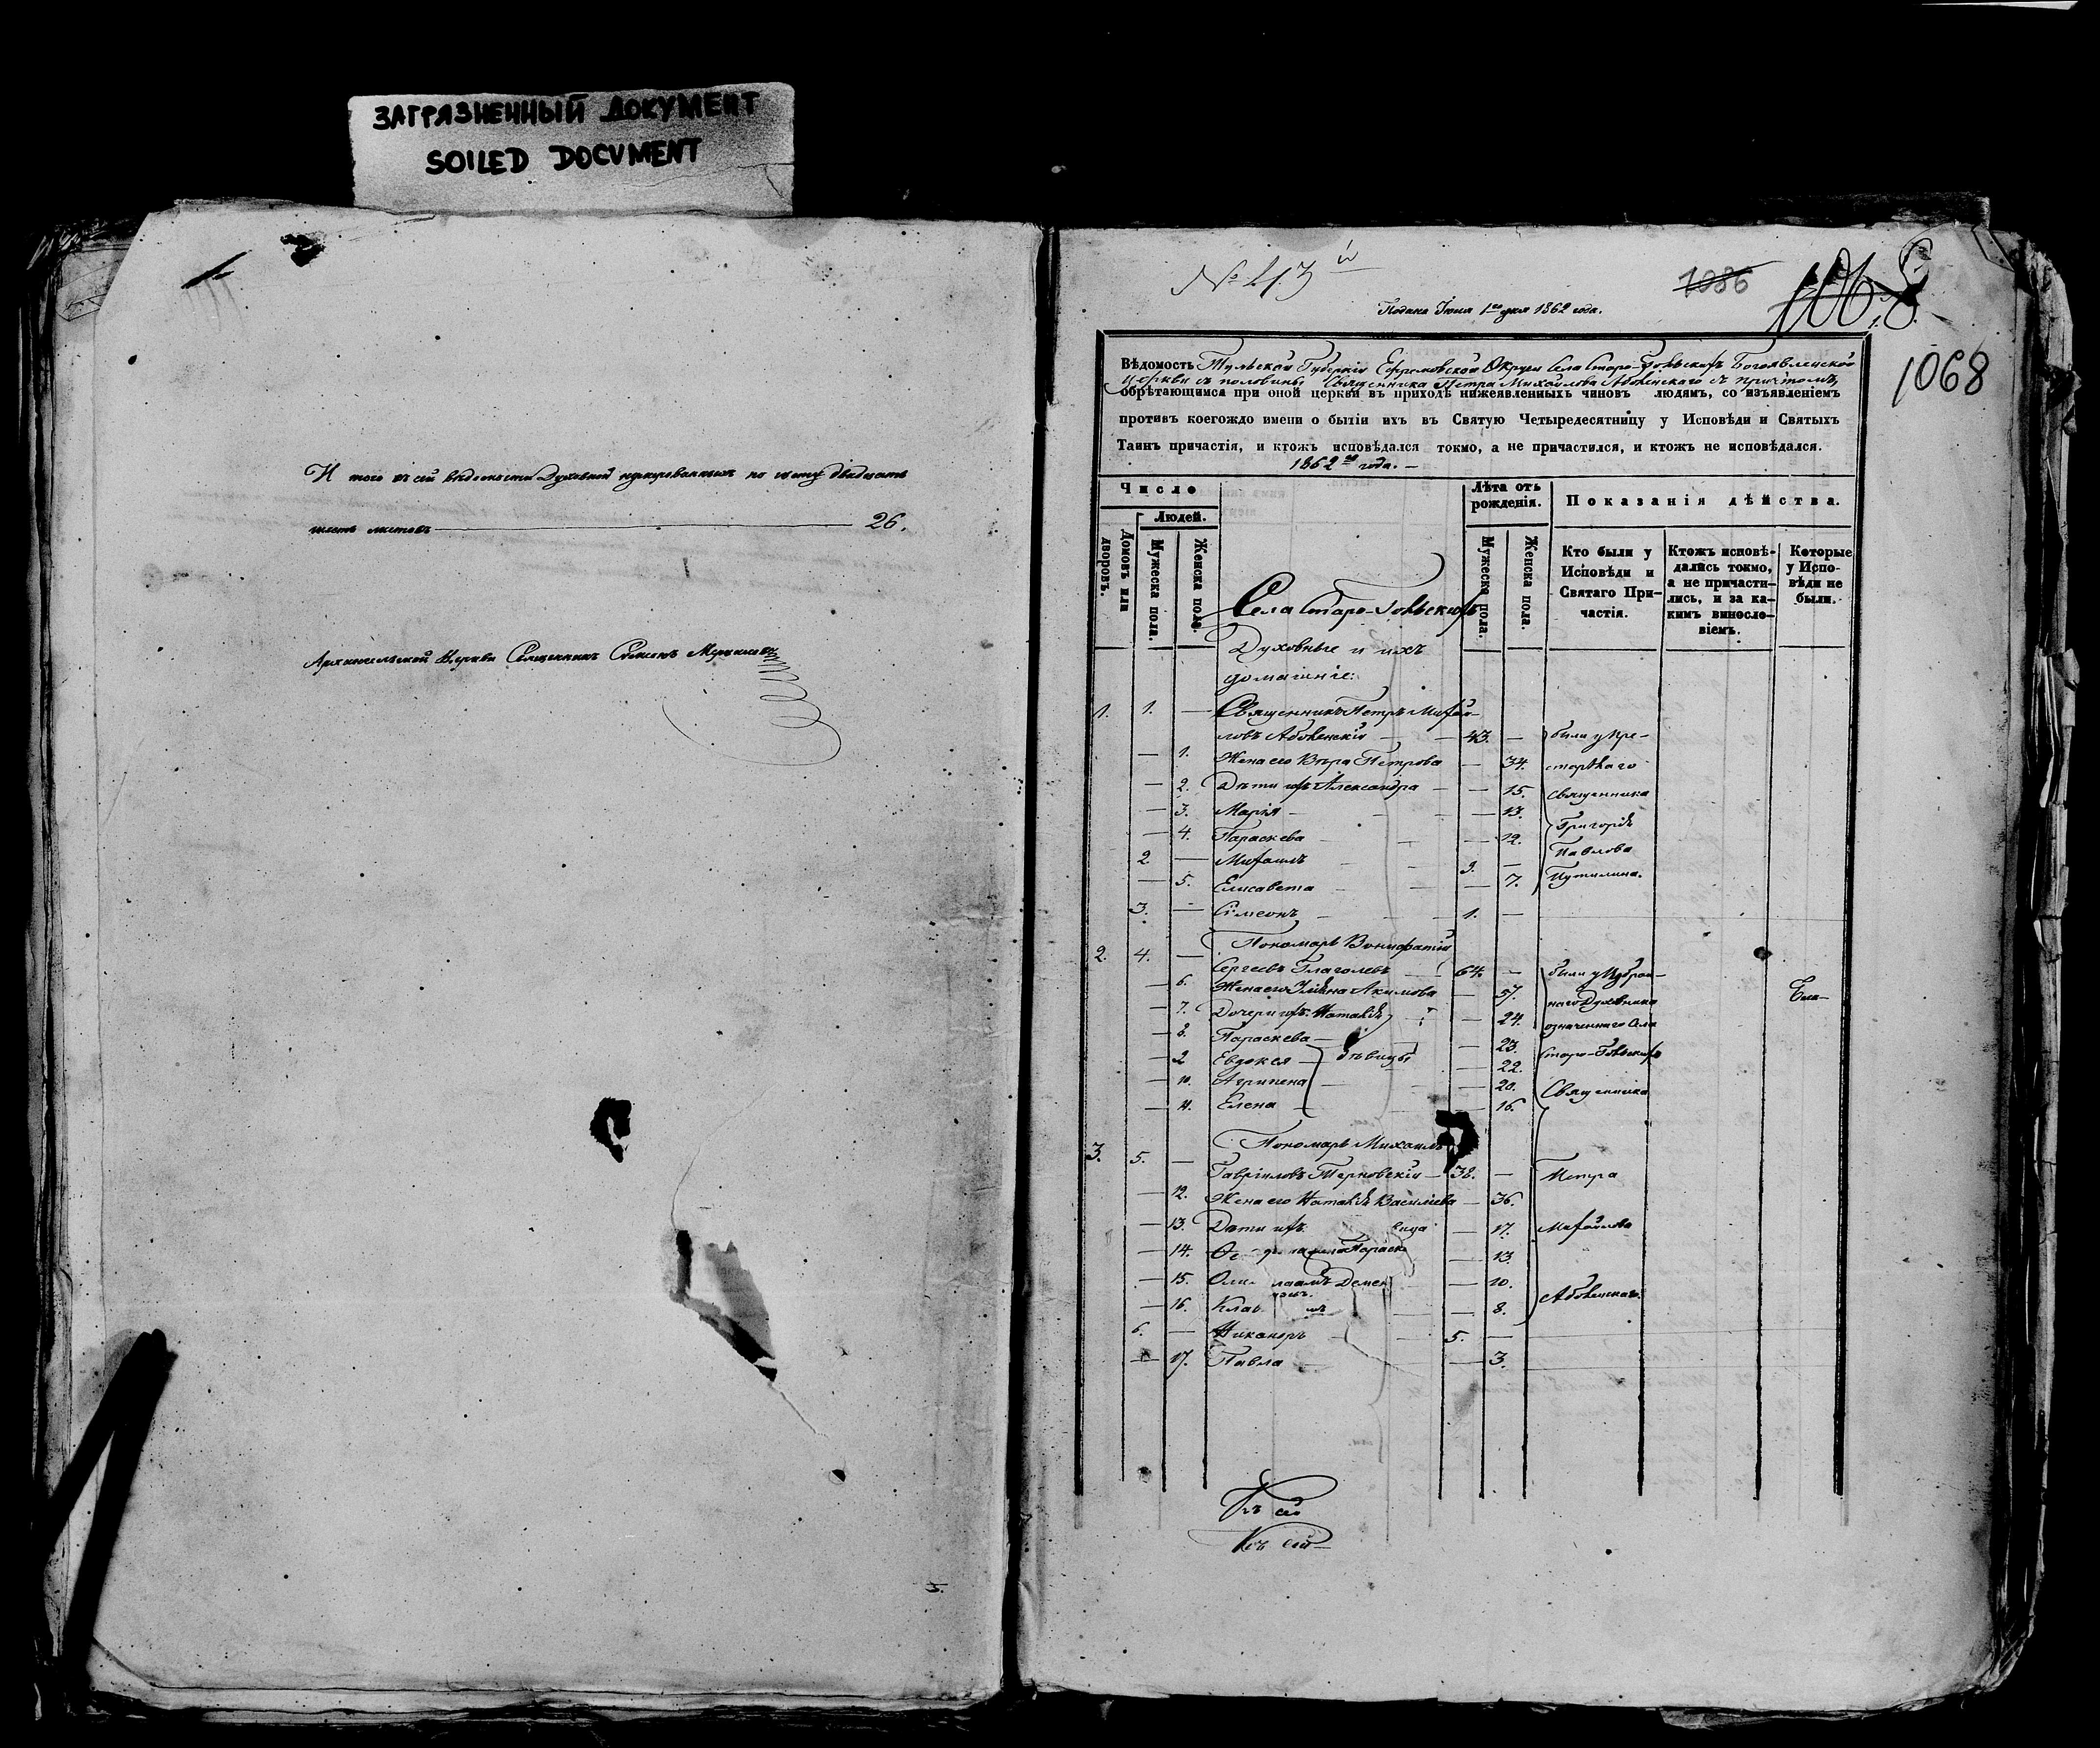 ЗАГРЯЗНЕННЫЙ ДОКУМЕНТ
SOILED DOCUMENT
И того въ сей вѣдомости Духовной нумерованныхъ по листу двадцать
шесть листовъ 26.
Архангельской Церкви Священникъ Симеонъ
5.
№ 413й
1086
1068
Подана Іюля 1го дня 1862 года.
Вѣдомость Тульской Губерніи Ефремовской Округи Села Старо-Гольскихъ Богоявленской
церкви съ половины Священника Петра Михайлова съ причтомъ,
обрѣтающимся при оной церкви въ приходѣ нижеявленныхъ чиновъ людямъ, со изъявленіемъ
противъ коегождо имени о бытіи ихъ въ Святую Четыредесятницу у Исповѣди и Святыхъ
Таинъ причастія, и ктожъ исповѣдался токмо, а не причастился, и ктожъ не исповѣдался.
1862го года.
Число
Людей.
Домовъ или дворовъ.
Мужеска пола.
Женска пола.
Лѣта отъ рожденія.
Мужеска пола.
Женска пола.
Показанія дѣйства.
Кто были у Исповѣди и Святаго Причастія.
Ктожъ исповѣдались токмо, а не причастились, и за какимъ винословіемъ.
Которые у Исповѣди не были.
Села Старо-Гольскихъ
Духовные и ихъ
домашніе:
1. 1. — Священникъ Петръ Михай-
ловъ — 43. — были у Пре-
— 1. Жена его Вѣра Петрова — 34. старѣлаго
— 2. Дѣти ихъ Александра — 15. священника
— 3. Марія — 13. Григорія
— 4. Параскева — 12. Павлова
2 — Михаилъ 9. — Путилина.
— 5. Елисавета — 7.
3. — Сѵмеонъ — 1. —
2. 4. — Пономарь Вонифатій
Сергеевъ Глаголевъ — 64. — были у
— 6. Жена его Акимова — 57. наго Духовника
— 7. Дочери ихъ: Наталія — 24. означеннаго Села
— 8. Параскева — 23. Старо-Гольскихъ
— 9 Евдокія — дѣвицы — 22.
— 10. Агрипена — 20. Священника
— 11. Елена — 16.
3. 5. — Пономарь Михаилъ
Гавріиловъ Терновскій — 38. — Петра
— 12. Жена его Наталія Васильева — 36.
— 13. Дѣти ихъ — 17. Михайлова
— 14. — 13.
— 15. — 10.
— 16. Клав — 8.
6. — Никаноръ — 5. —
— 17. Павла — 3.